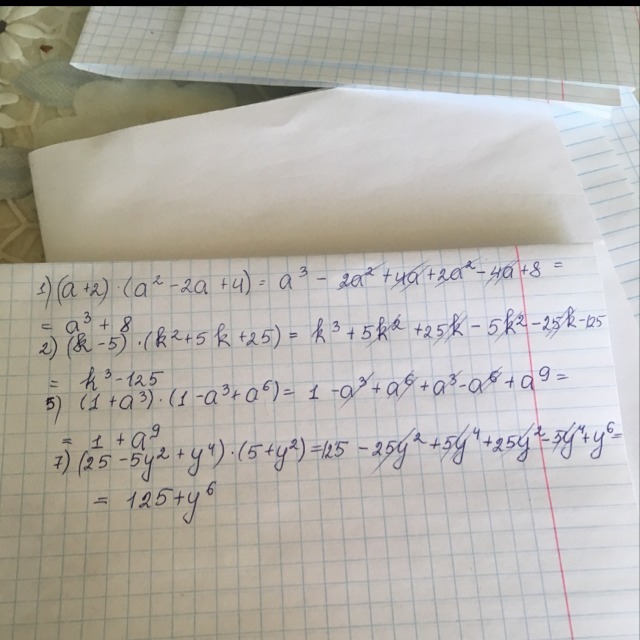 1) (a+2)·(a²-2a+4) = a³ - 2a² + 4a + 2a² - 4a + 8 =
= a³ + 8
2) (k-5)·(k²+5k+25) = k³+5k²+25k-5k²-25k-125
= k³-125
5) (1+a³)·(1-a³+a⁶) = 1-a³+a⁶+a³-a⁶+a⁹=
= 1+a⁹
7) (25-5y²+y⁴)·(5+y²)=125-25y²+5y⁴+25y²-5y⁴+y⁶=
= 125+y⁶